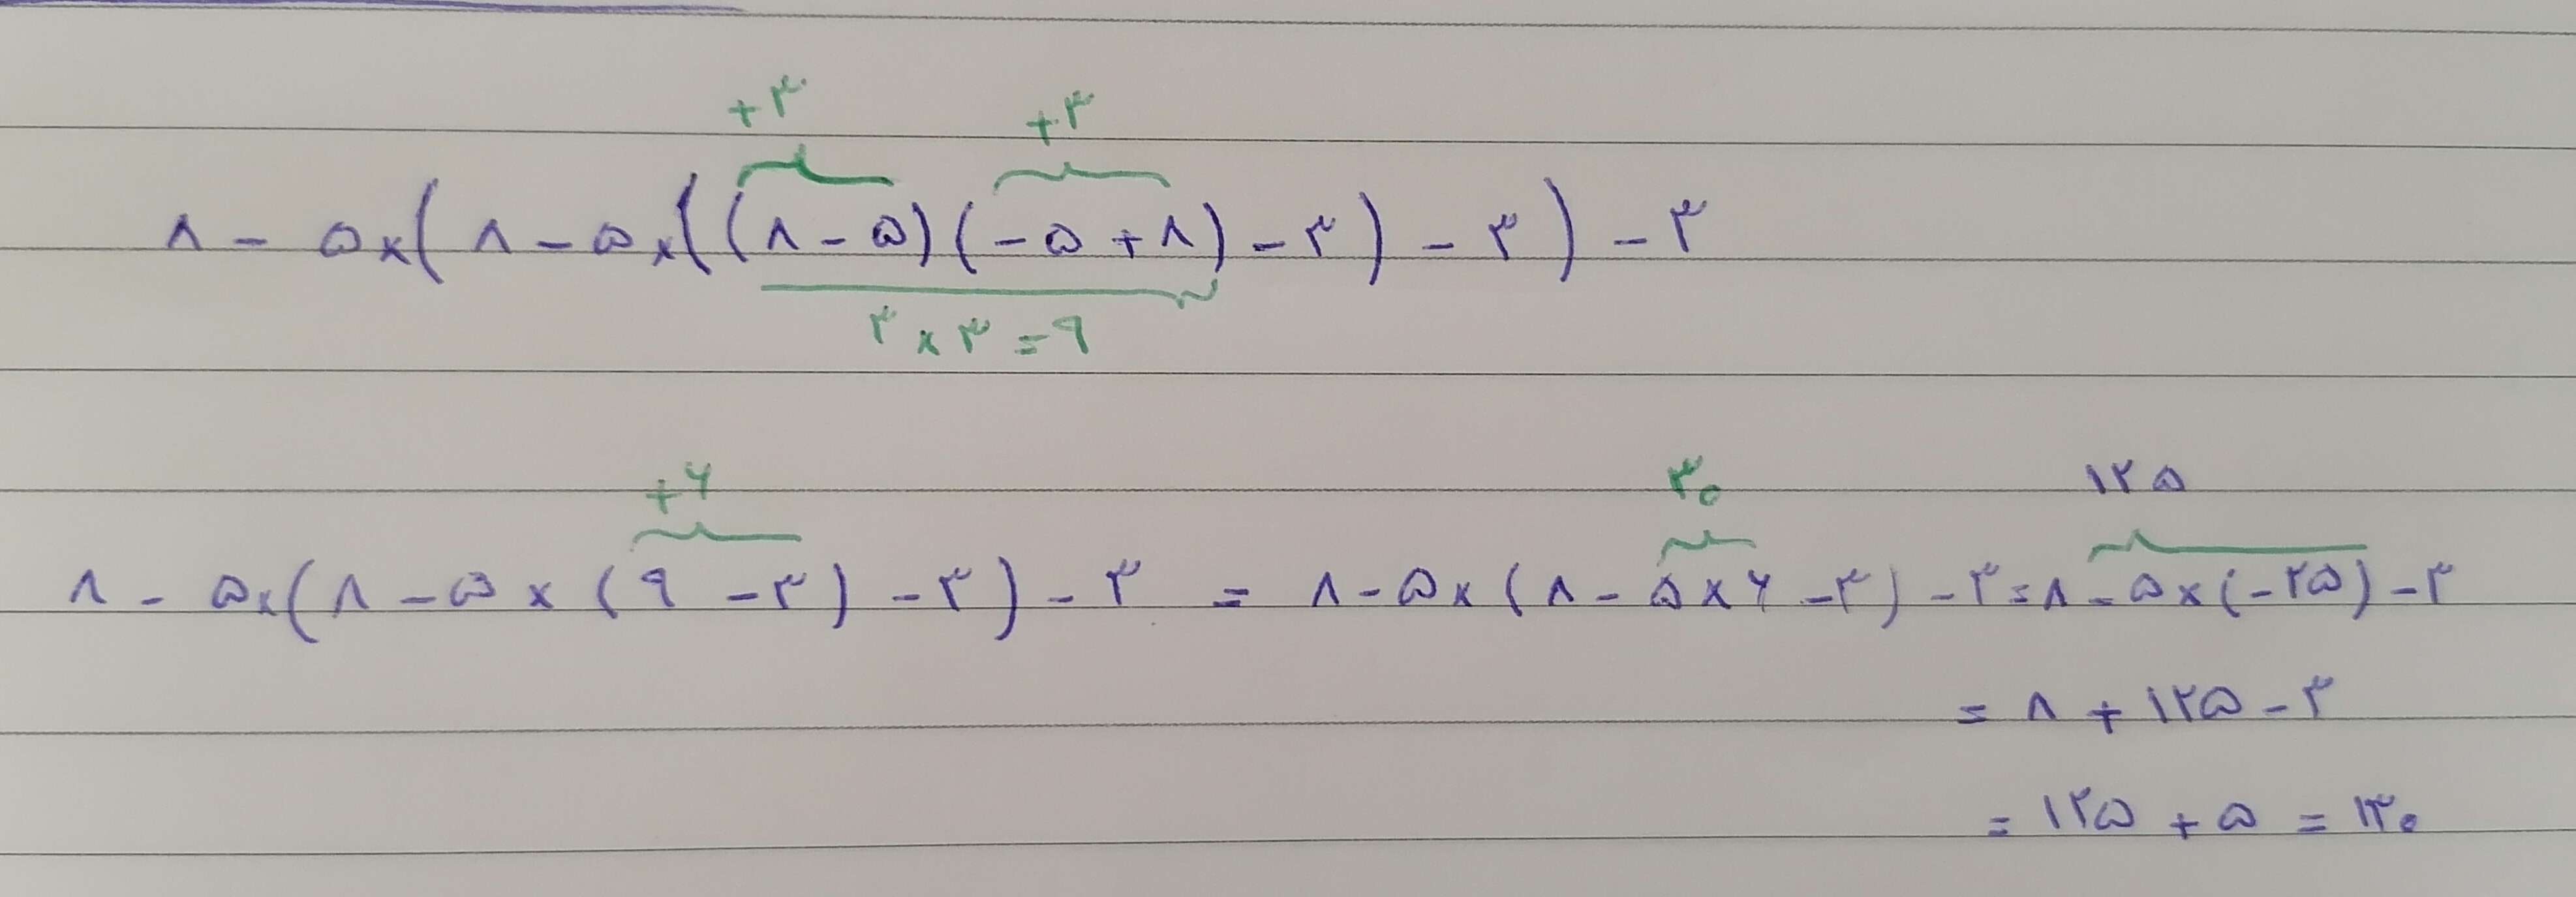 +۳ +۳
۸ - ۵×(۸ - ۵×((۸ - ۵)(-۵ + ۸) - ۳) - ۳) - ۳
۳ × ۳ = ۹
+۶ ۳۰ ۱۲۵
۸ - ۵×(۸ - ۵ × (۹ - ۳) - ۳) - ۳ = ۸ - ۵× (۸ - ۵ × ۶ - ۳) - ۳ = ۸ - ۵×(-۲۵) - ۳
= ۸ + ۱۲۵ - ۳
= ۱۲۵ + ۵ = ۱۳۰